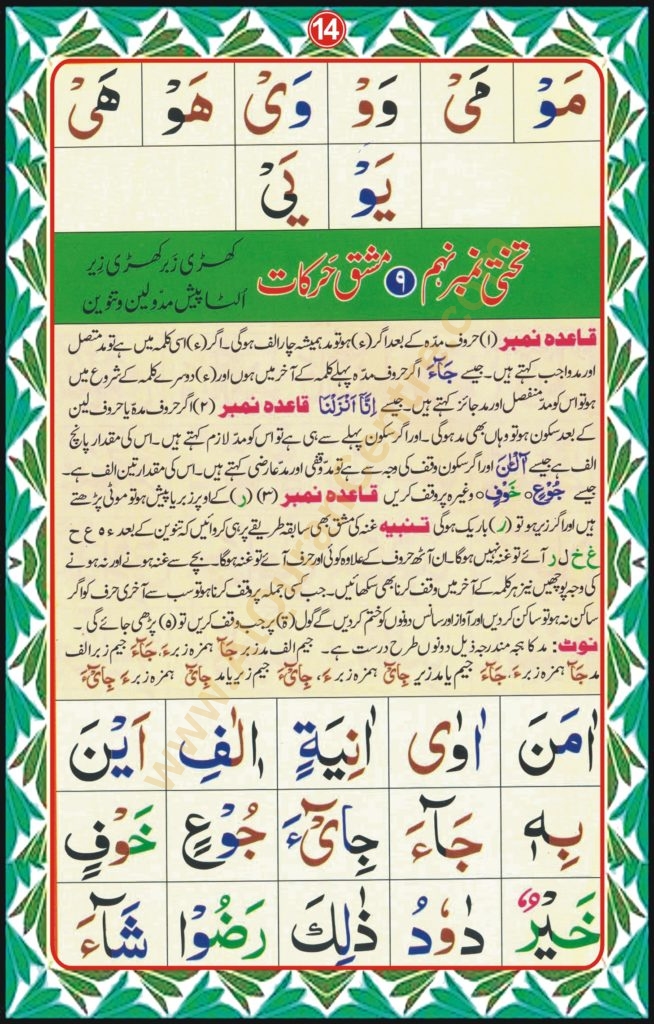 14
مَوْ مَىْ وَوْ وَىْ هَوْ هَىْ
يَوْ يَىْ
تختی نمبر نہم ۹ مشق حرکات
کھڑی زَبر کھڑی زِیر
اُلٹا پیش مدّولین و تنوین
قاعدہ نمبر (۱) حروف مدّہ کے بعد اگر (ء) ہو تو مد ہمیشہ چار الف ہوگی۔ اگر (ء) اسی کلمہ میں ہے تو مد متصل
اور مد واجب کہتے ہیں۔ جیسے جَآءَ اگر حروف مدّہ پہلے کلمہ کے آخر میں ہوں اور (ء) دوسرے کلمہ کے شروع میں
ہو تو اس کو مدّ منفصل اور مد جائز کہتے ہیں۔ جیسے اِنَّآ اَنْزَلْنَا قاعدہ نمبر (۲) اگر حروف مدۃ یا حروف لین
کے بعد سکون ہو تو وہاں بھی مد ہوگی۔ اور اگر سکون پہلے سے ہی ہے تو اس کو مدّ لازم کہتے ہیں۔ اس کی مقدار پانچ
الف ہے جیسے آلْـٰٔنَ اور اگر سکون وقف کی وجہ سے ہے تو مدّ وقفی اور مد عارضی کہتے ہیں۔ اس کی مقدار تین الف ہے۔
جیسے جُوْعٍ ○ خَوْفٍ ○ وغیرہ پر وقف کریں قاعدہ نمبر (۳) (ر) کے اوپر زبر یا پیش ہو تو موٹی پڑھتے
ہیں اور اگر زیر ہو تو (ر) باریک ہوگی تنبیہ غنہ کی مشق بھی سابقہ طریقے پر ہی کروائیں کہ تنوین کے بعد ء ہ ع ح
غ خ ل ر آئے تو غنہ نہیں ہوگا۔ ان آٹھ حروف کے علاوہ کوئی اور حرف آئے تو غنہ ہوگا۔ بچے سے غنہ ہونے اور نہ ہونے
کی وجہ پوچھیں نیز ہر کلمہ کے آخر میں وقف کرنا بھی سکھائیں۔ جب کسی جملہ پر وقف کرنا ہو تو سب سے آخری حرف کو اگر
ساکن نہ ہو تو ساکن کر دیں اور آواز اور سانس دونوں کو ختم کر دیں گے گول (ۃ) پر جب وقف کریں تو (ہ) پڑھی جائے گی۔
نوٹ: مد کا ہجہ مندرجہ ذیل دونوں طرح درست ہے۔ جیم الف مد زبر جَآ ہمزہ زبر ءَ، جَآءَ جیم زبر الف
مد جَآ ہمزہ زبر ءَ، جَآءَ جیم یا مد زیر جِایْٓ ہمزہ زبر ءَ، جِایْٓءَ جیم زیر یا مد جِایْٓ ہمزہ زبر ءَ جِایْٓءَ
اٰمَنَ اٰوٰى اٰنِيَةٍ اٖلٰفِ اَيْنَ
بِهٖ جَآءَ جِایْٓءَ جُوْعٍ خَوْفٍ
خَيْرٌ دَاوٗدُ ذٰلِكَ رَضُوْا شَآءَ